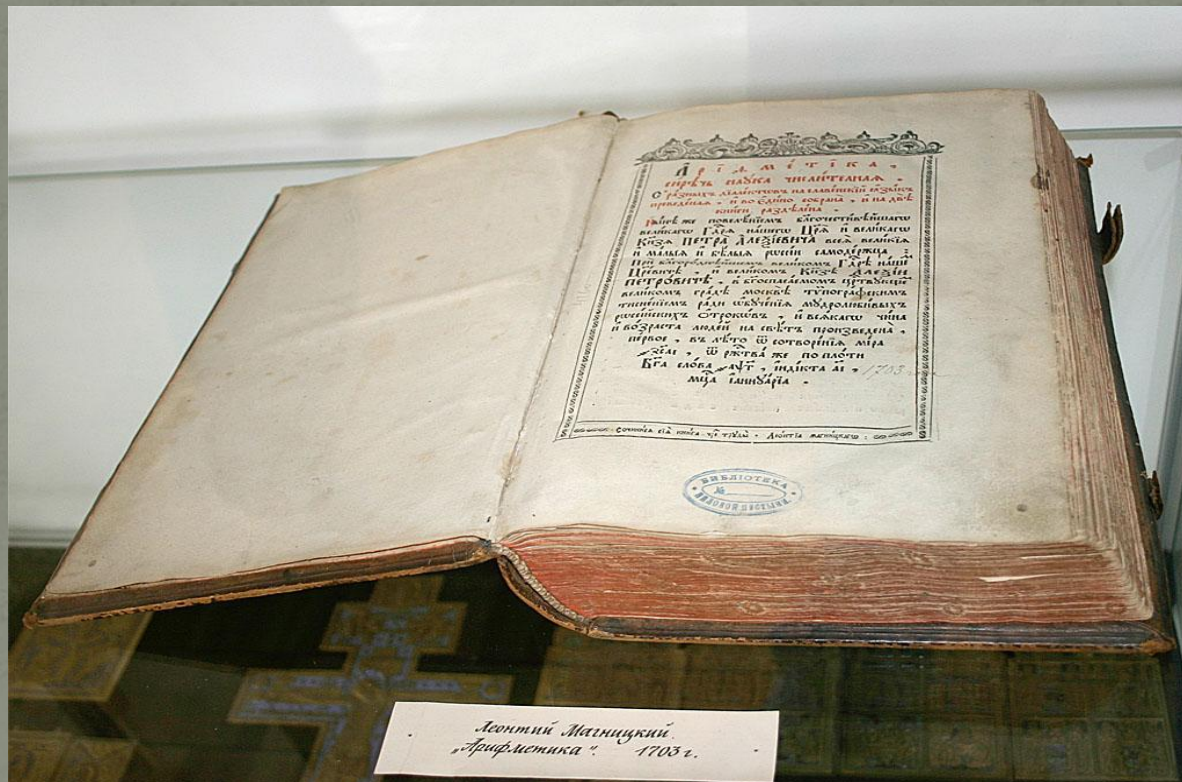 А҆риѳме́тїка,
сирѣ́чь наꙋ́ка числи́телная.
С̾ ра́зныхъ дїале́ктѡвъ на славе́нскїй ꙗ҆зы́къ
преведе́ная, и҆ во є҆ди́но собрана̀, и҆ на двѣ̀
кни̑ги раздѣле́на.
Ны́нѣ же повелѣ́нїемъ бл҃гочести́вѣйшагѡ
вели́кагѡ Гдⷭ҇рѧ на́шегѡ Цр҃ѧ̀ и҆ вели́кагѡ
Кн҃зѧ ПЕТРА̀ А҆ЛЕѮІ́ЕВИЧА всеѧ̀ вели́кїѧ
и҆ ма́лыѧ и҆ бѣ́лыѧ рѡссі́и самоде́ржца:
При бл҃горо́днѣйшемъ вели́комъ Гдⷭ҇рѣ на́шемъ
Цр҃е́вичѣ, и҆ вели́комъ Кн҃зѣ А҆ЛЕѮІ́И
ПЕТРО́ВИЧѢ, в̾ бг҃оспаса́емомъ црⷭ҇твꙋющемъ
вели́комъ гра́дѣ москвѣ̀ тѷпогра́фскимъ
тисне́нїемъ ра́ди ѡ҆бꙋче́нїѧ мꙋдролюби́выхъ
рѡссі́йскихъ ѻ҆́трокѡвъ, и҆ всѧ́кагѡ чи́на
и҆ во́зраста люде́й на свѣ́тъ произведена̀,
пе́рвое, въ лѣ́то ѿ сотворе́нїѧ мі́ра
҂зс҃аі, ѿ ржⷭ҇тва̀ же по пло́ти
Бг҃а сло́ва ҂аѱ҃г, і҆нді́кта а҃і, 1703
мцⷭ҇а і҆аннꙋа́рїа.
Сочини́сѧ сїѧ̀ кни́га чрез̾ трꙋды̀ Лео́нтїа магни́цкагѡ:
БИБЛІОТЕКА
№
Леонтий Магницкий.
„Арифметика“. 1703 г.